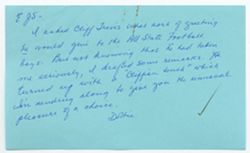 E JS -
I asked Cliff Travis what sort of greeting
he would give to the All State Football
boys. But not knowing that he had taken
me seriously, I drafted some remarks. He
turned up with a "Cliffer touch" which
I'm sending along to give you the unusual
pleasure of a choice.